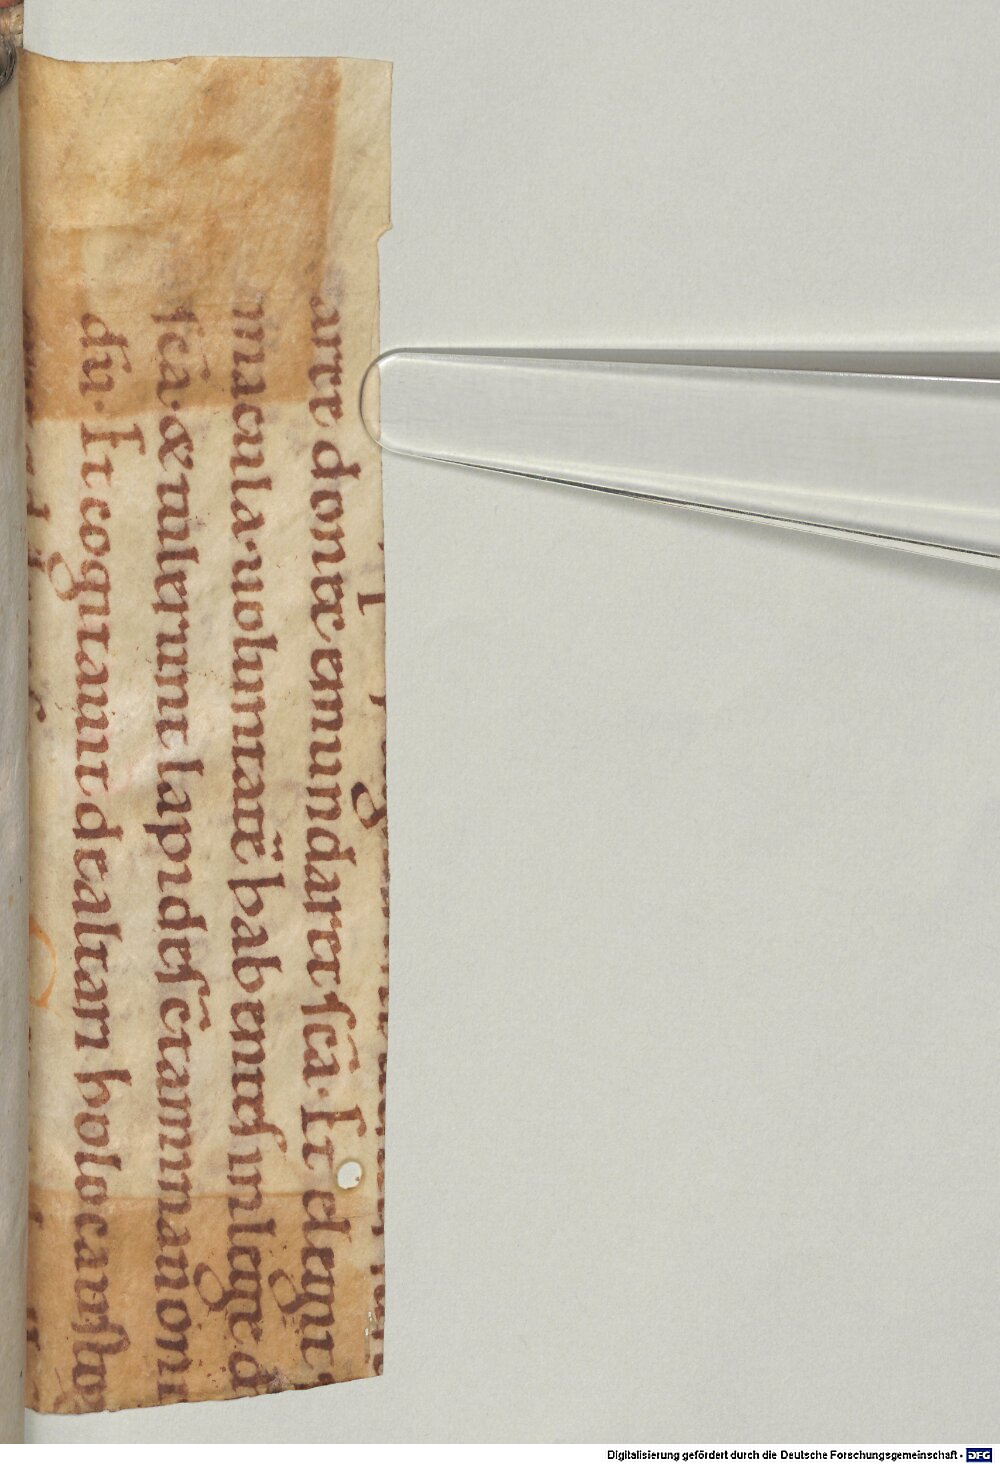 arce donec emundaret sc̄a. Et elegit
macula. uoluntatē habentes in lege d
sc̄a. & tulerunt lapides c̄taminationi
dū. Et cogitauit de altari holocausto
Digitalisierung gefördert durch die Deutsche Forschungsgemeinschaft - DFG